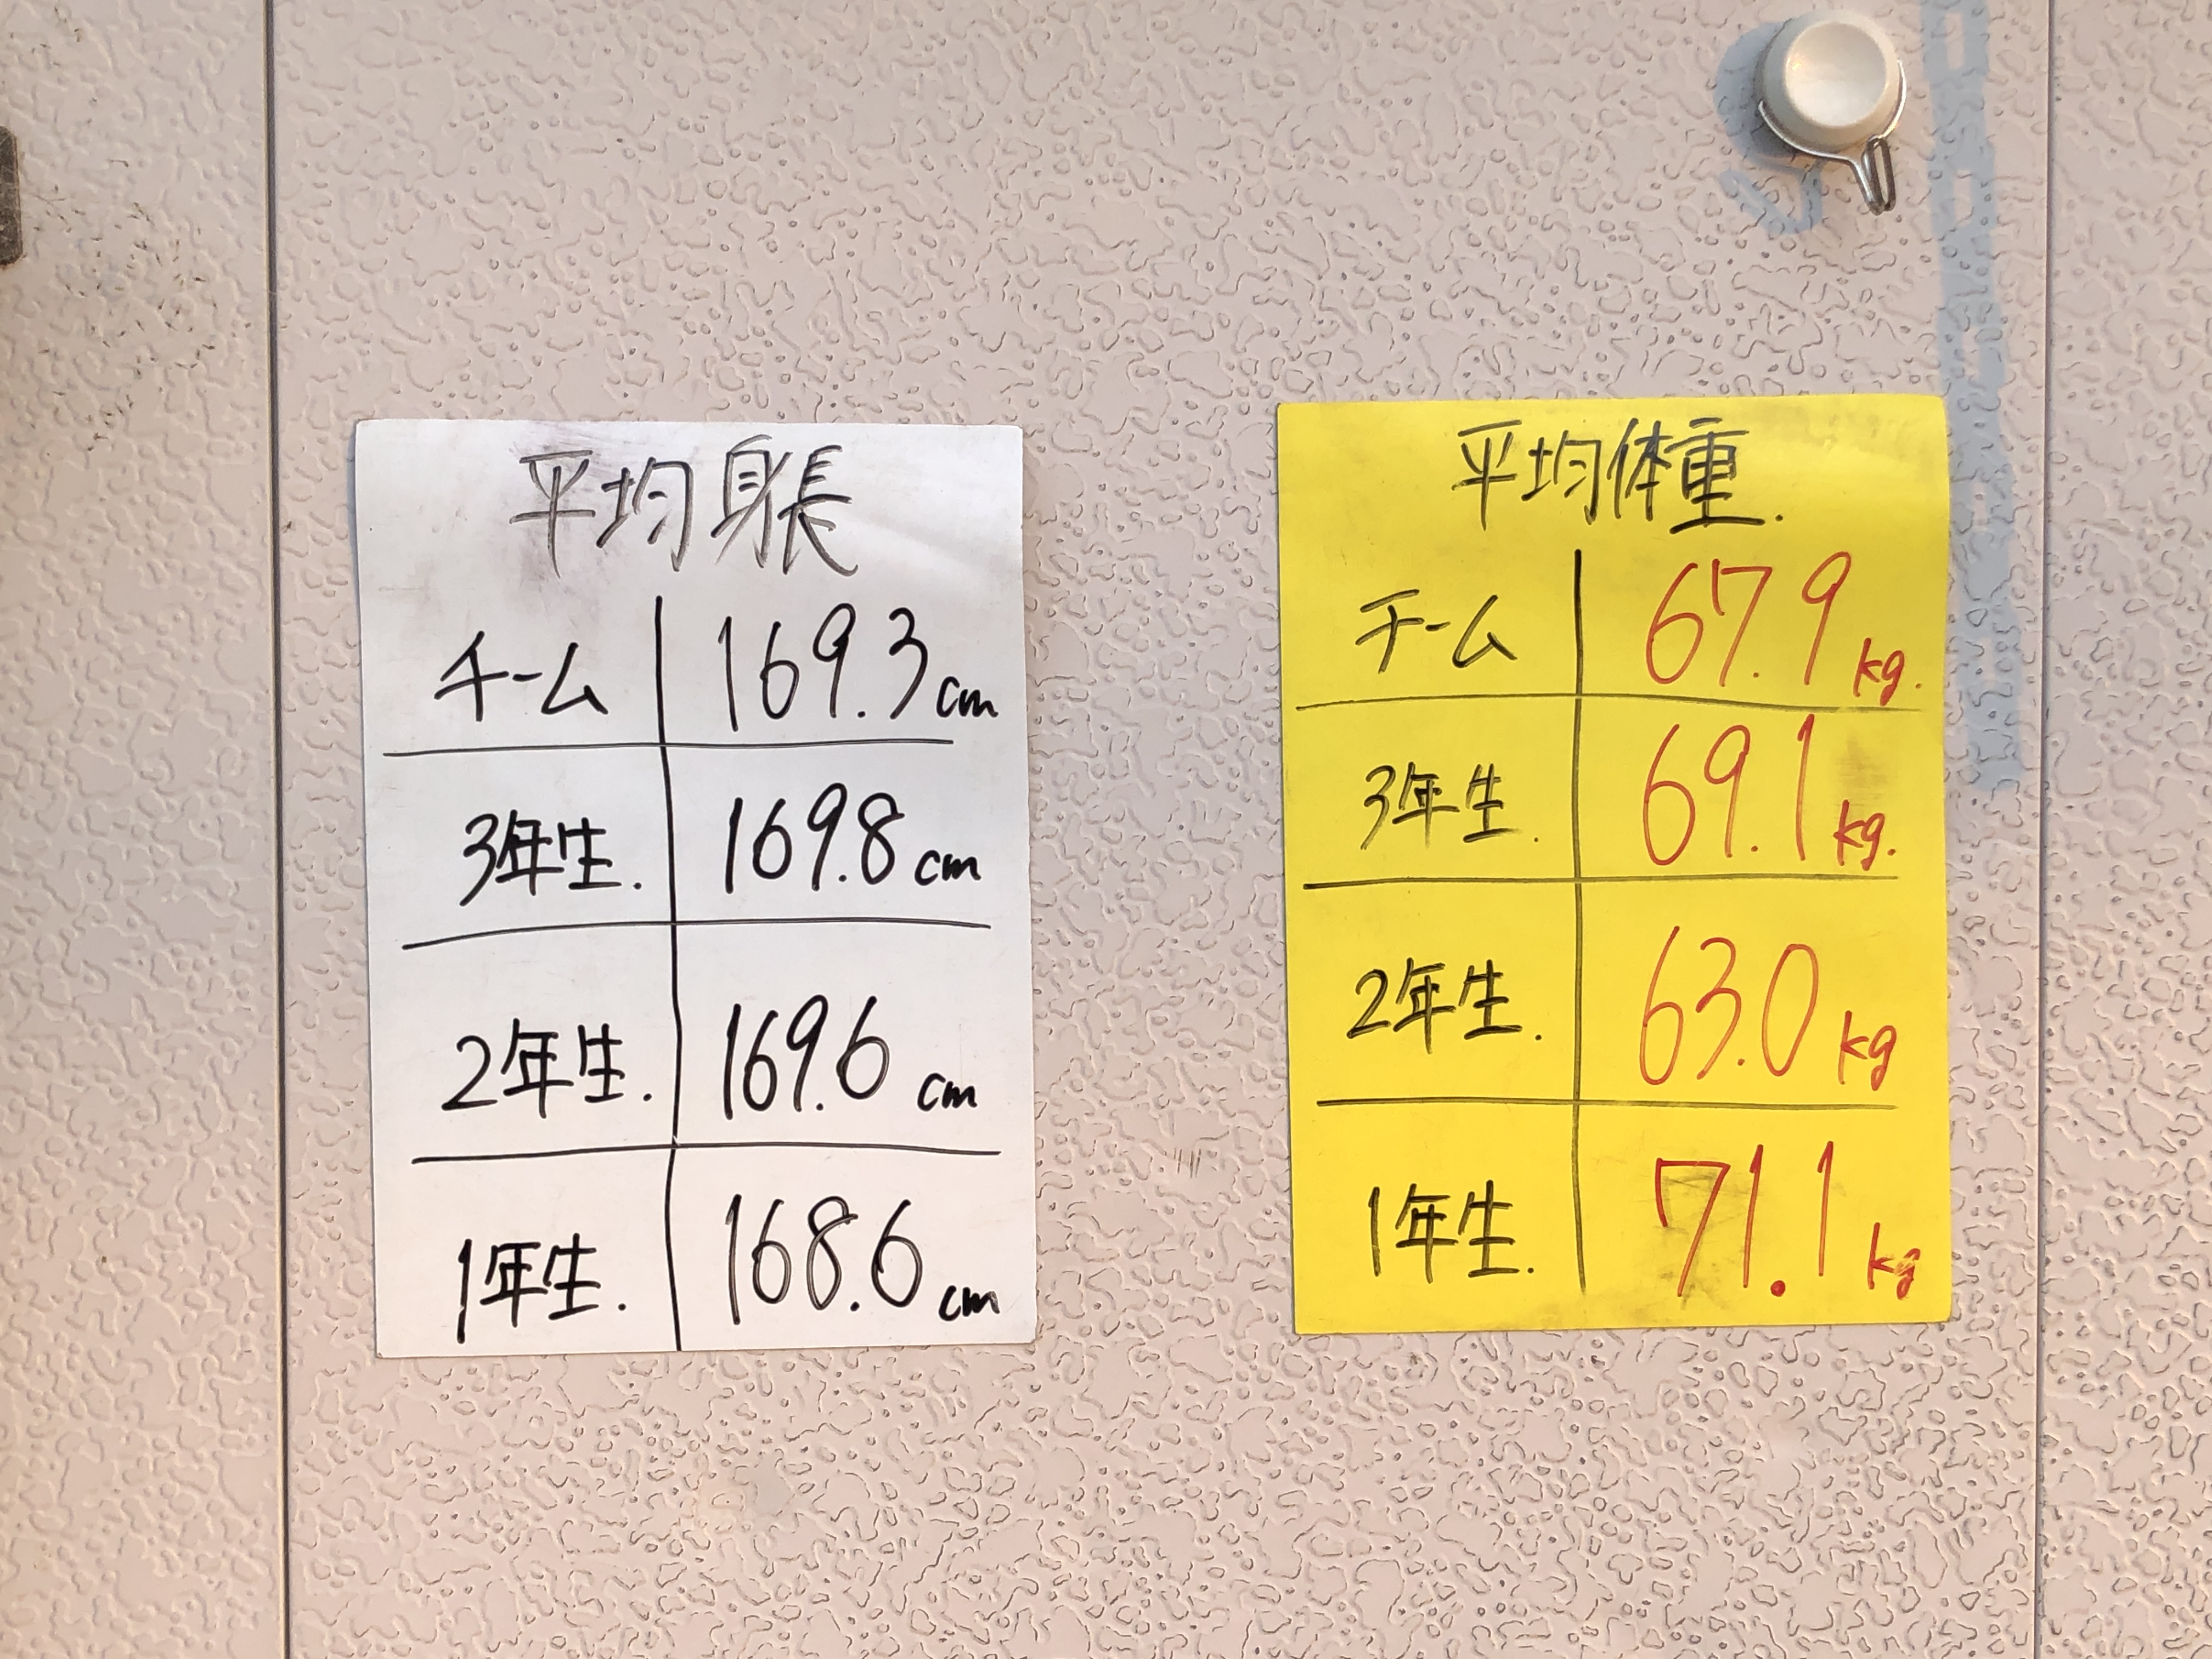 平均身長
チーム 169.3cm
3年生. 169.8cm
2年生. 169.6cm
1年生. 168.6cm
平均体重.
チーム 67.9kg.
3年生. 69.1kg.
2年生. 63.0kg
1年生. 71.1kg